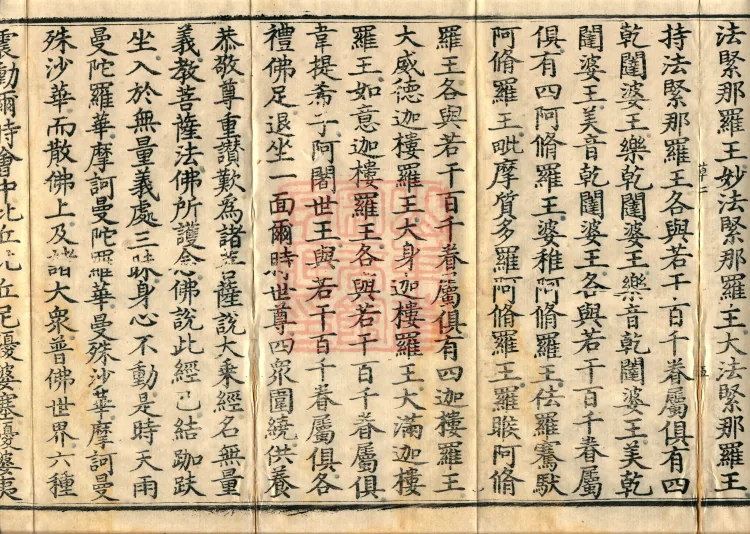 法緊那羅王妙法緊那羅王大法緊那羅王
持法緊那羅王各與若干百千眷屬俱有四
乾闥婆王樂乾闥婆王樂音乾闥婆王美乾
闥婆王美音乾闥婆王各與若干百千眷屬
俱有四阿脩羅王婆稚阿脩羅王佉羅騫馱
阿脩羅王毗摩質多羅阿脩羅王羅睺阿脩
羅王各與若干百千眷屬俱有四迦樓羅王
大威德迦樓羅王大身迦樓羅王大滿迦樓
羅王如意迦樓羅王各與若干百千眷屬俱
韋提希子阿闍世王與若干百千眷屬俱各
禮佛足退坐一面爾時世尊四衆圍繞供養
恭敬尊重讃歎爲諸菩薩說大乘經名無量
義教菩薩法佛所護念佛說此經已結跏趺
坐入於無量義處三昧身心不動是時天雨
曼陀羅華摩訶曼陀羅華曼殊沙華摩訶曼
殊沙華而散佛上及諸大衆普佛世界六種
震動爾時會中比丘比丘尼優婆塞優婆夷